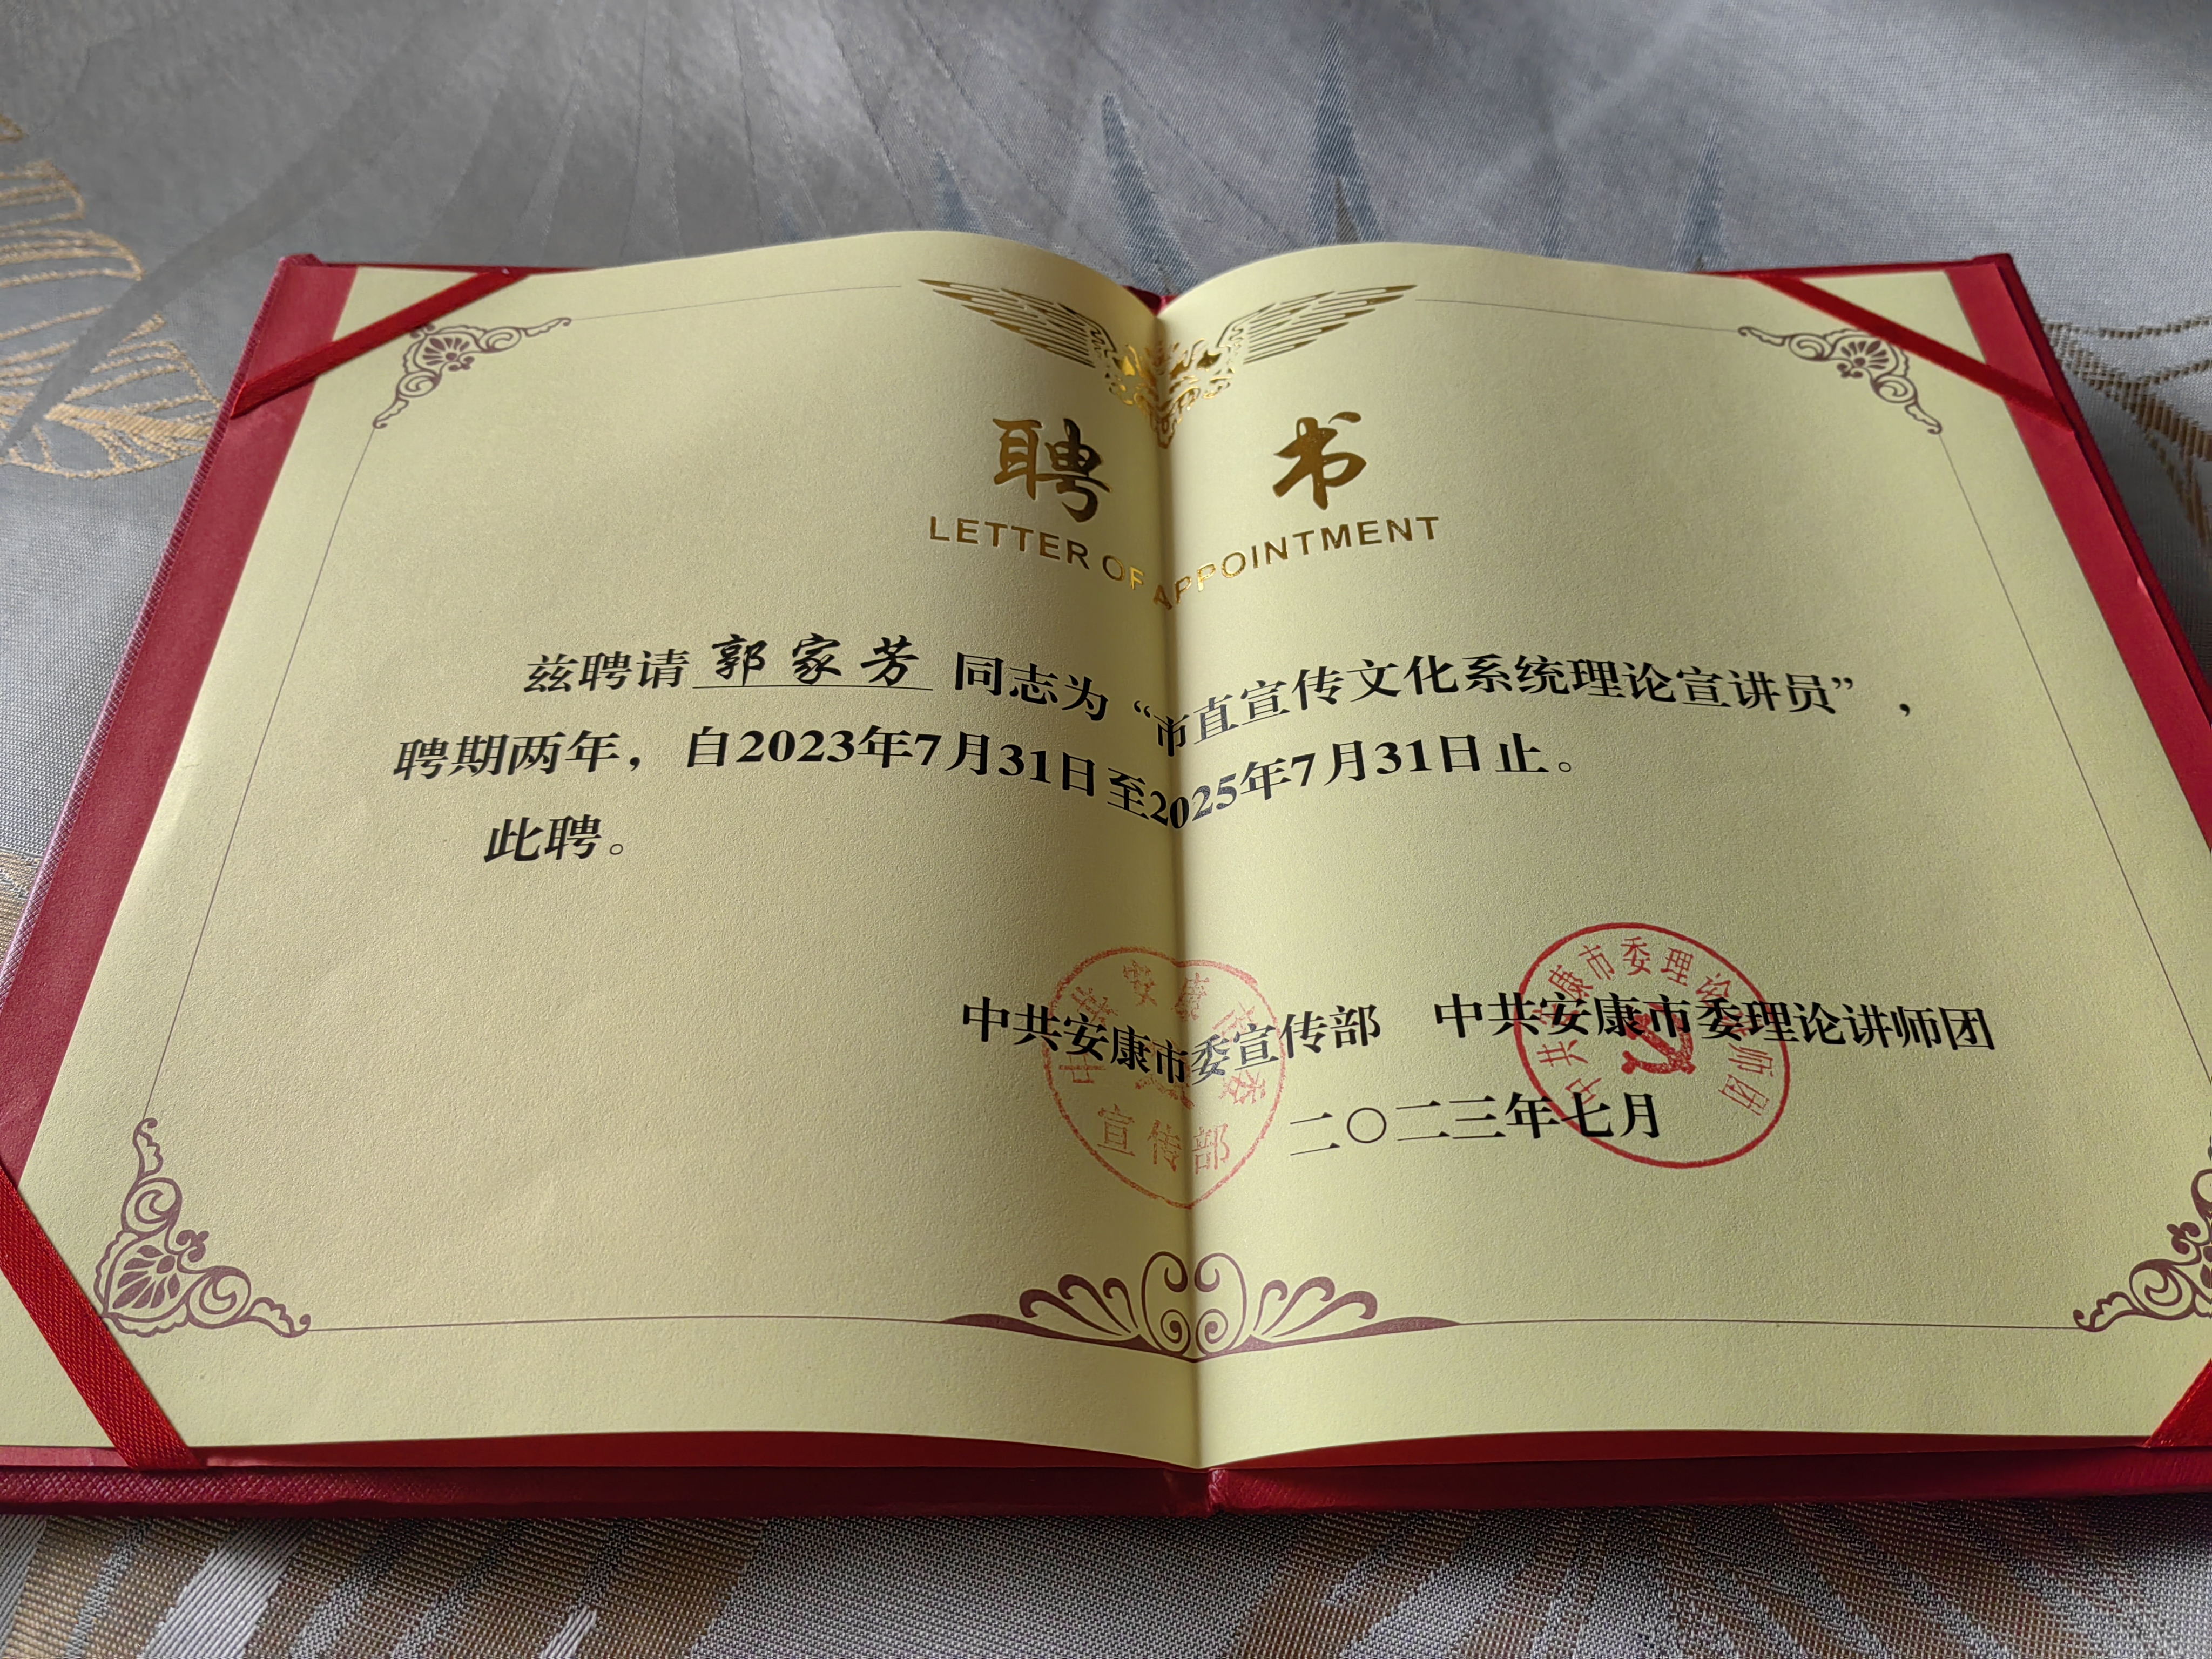 聘 书
LETTER OF APPOINTMENT
兹聘请 郭家芳 同志为“市直宣传文化系统理论宣讲员”，
聘期两年，自2023年7月31日至2025年7月31日止。
此聘。
中共安康市委宣传部 中共安康市委理论讲师团
二〇二三年七月
中共安康市委
宣传部
中共安康市委理论讲师团